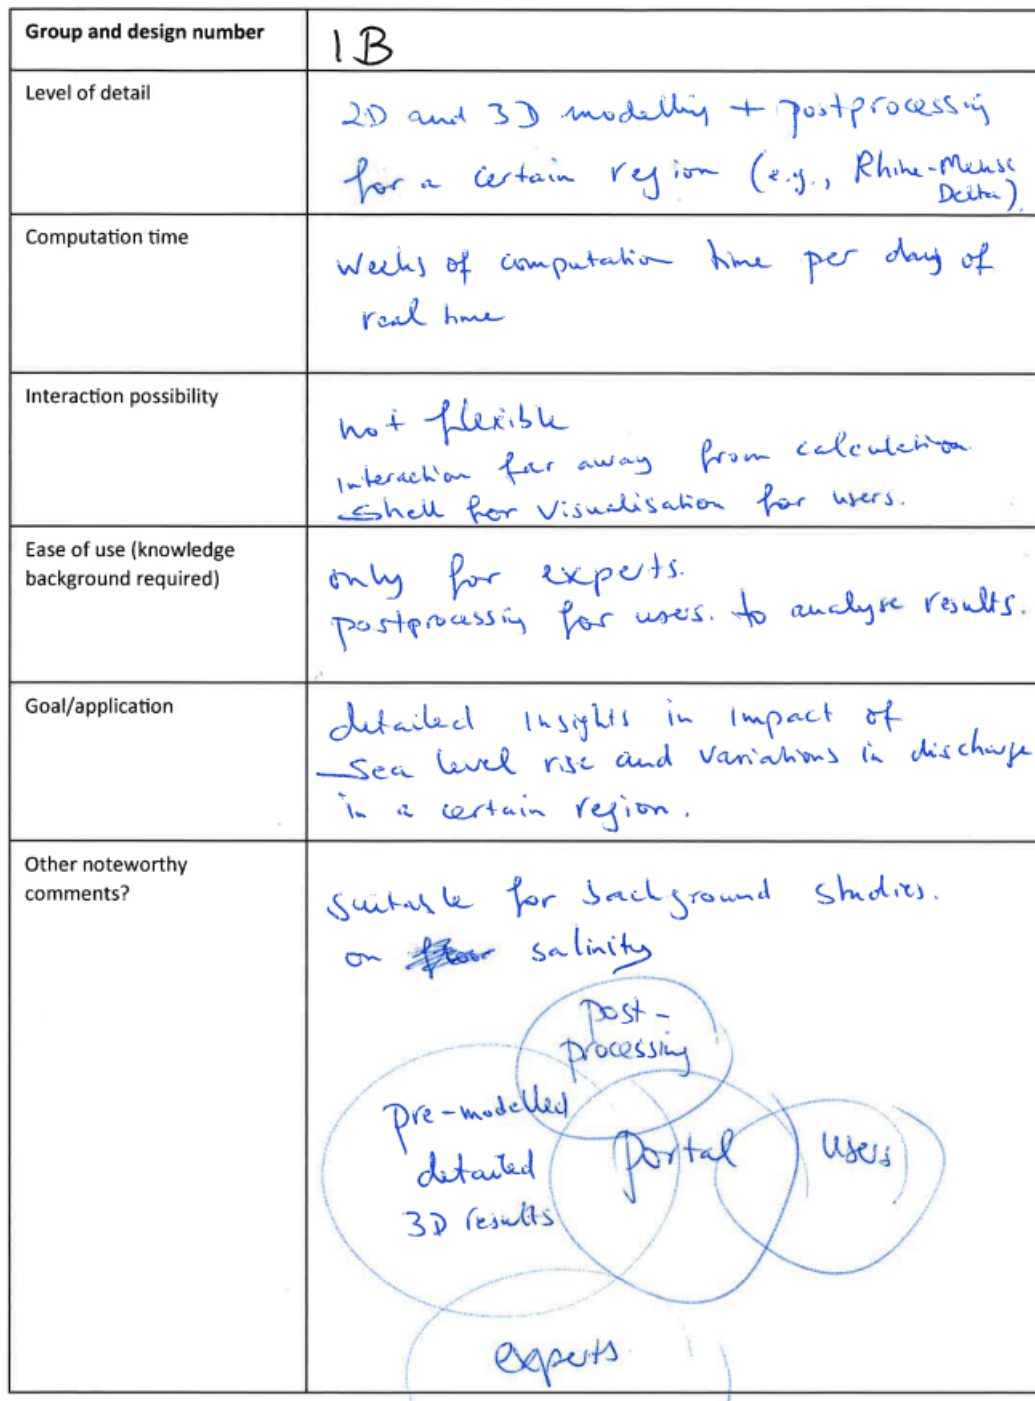 Group and design number
1B
Level of detail
2D and 3D modelling + postprocessing
for a certain region (e.g., Rhine-Meuse
Delta).
Computation time
weeks of computation time per day of
real time
Interaction possibility
not flexible
interaction far away from calculation
shell for visualisation for users.
Ease of use (knowledge
background required)
only for experts.
postprocessing for users. to analyse results.
Goal/application
detailed insights in impact of
sea level rise and variations in discharge
in a certain region.
Other noteworthy
comments?
suitable for background studies.
on salinity
post-
processing
pre-modelled
detailed
3D results
portal
users
experts